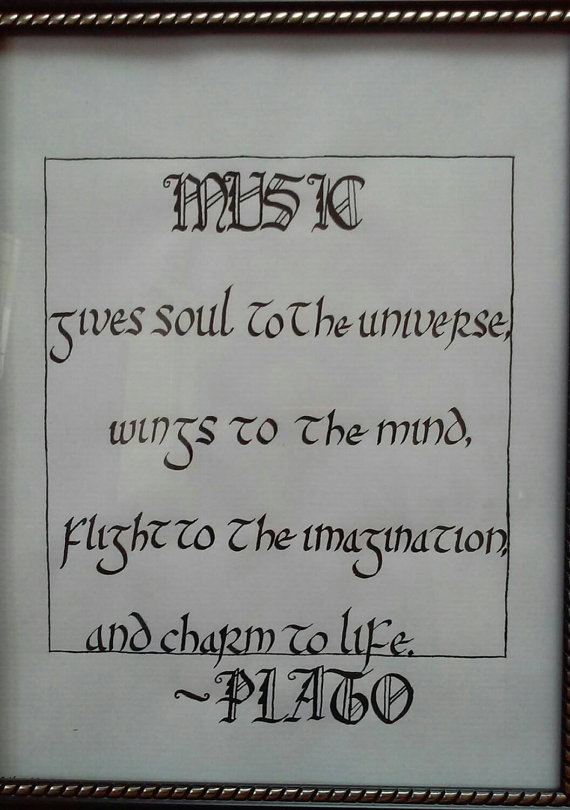 MUSIC
gives soul to the universe,
wings to the mind,
flight to the imagination,
and charm to life.
~PLATO